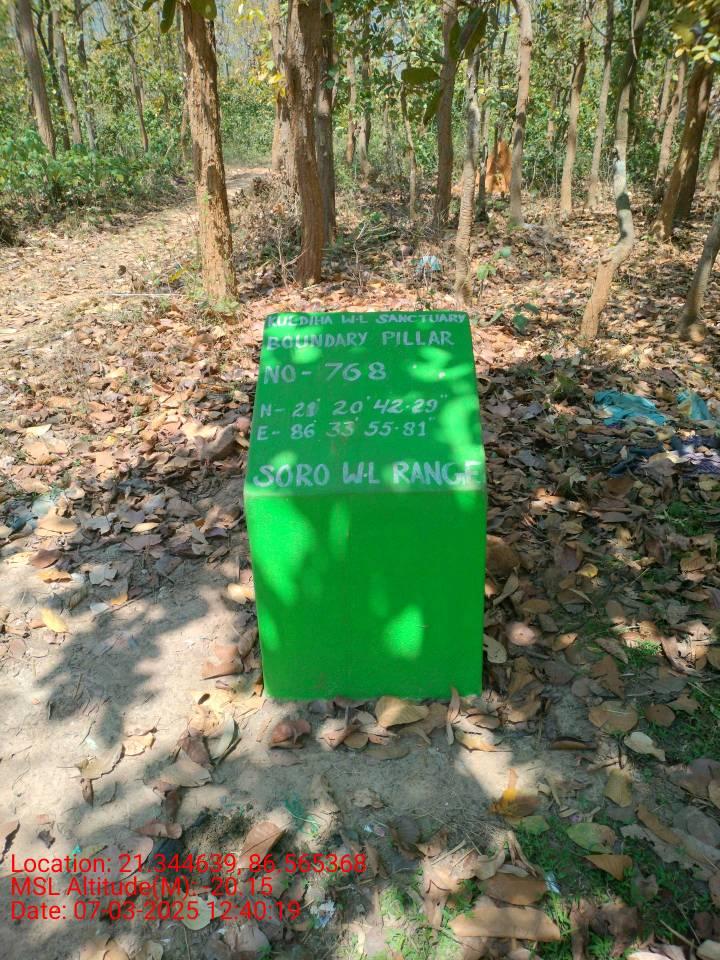 KULDIHA W.L SANCTUARY
BOUNDARY PILLAR
NO - 768
N - 21° 20' 42.29"
E - 86° 33' 55.81"
SORO W.L RANGE
Location: 21.344639, 86.565368
MSL Altitude(M): -20.15
Date: 07-03-2025 12:40:19